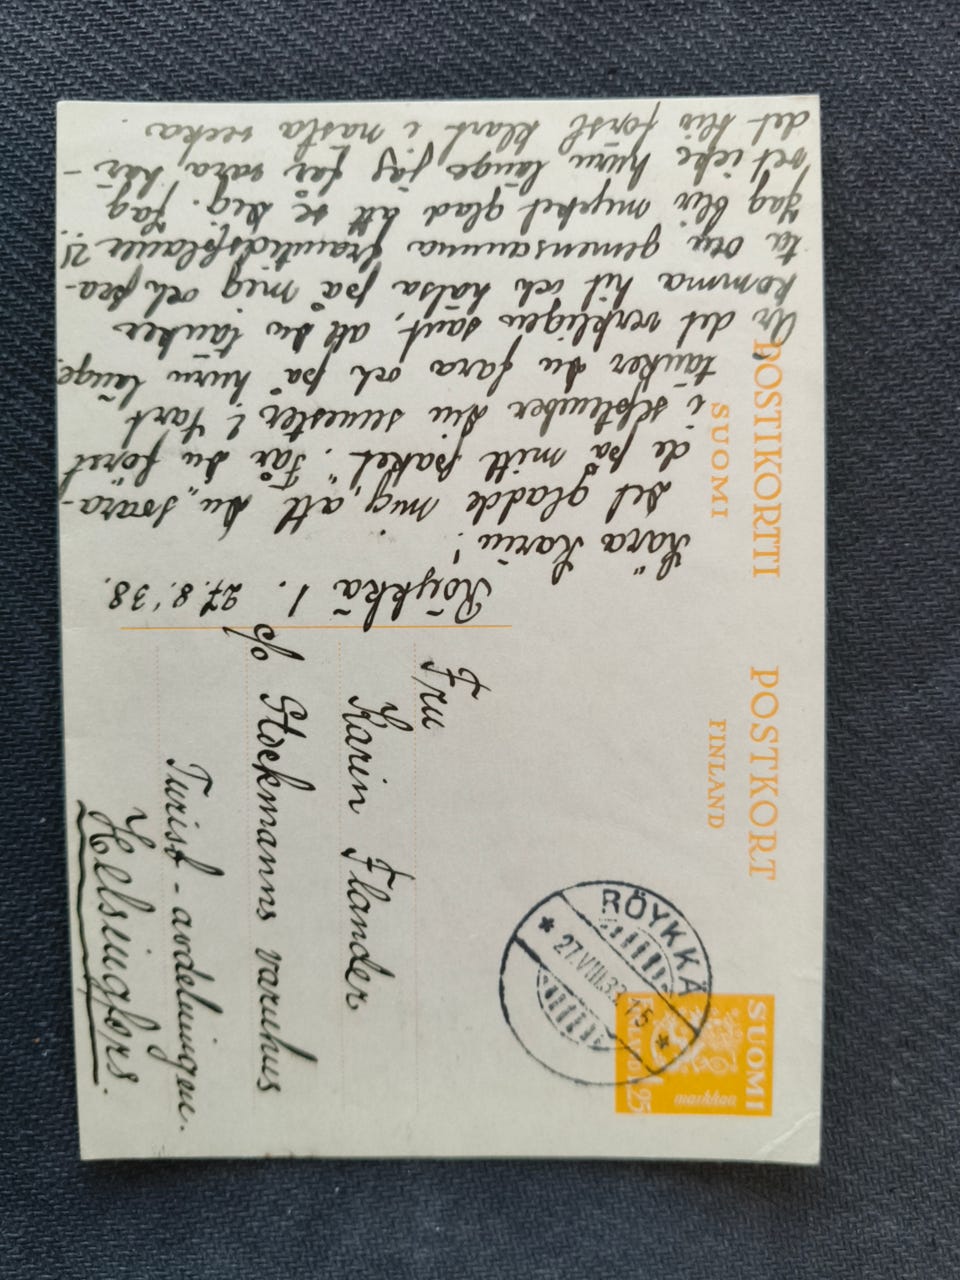 POSTIKORTTI
SUOMI
POSTKORT
FINLAND
SUOMI
markkaa
1,25
RÖYKKÄ
27.VIII.38.15
Fru
Karin Flander
c/o Stockmanns varuhus
Turist-avdelningen.
Helsingfors.
Röykkä 1. 27.8.'38.
Kära Karin!
Det gladde mig, att du „svara-
de på mitt paket". Får du först
i september din semester? Vart
tänker du fara och på huru länge?
Är det verkligen sant, att du tänker
komma hit och hälsa på mig och pra-
ta om gemensamma framtidsplaner?!
Jag blir mycket glad att se Dig. Jag
vet icke huru länge jag får vara här -
det blir först klart i nästa vecka